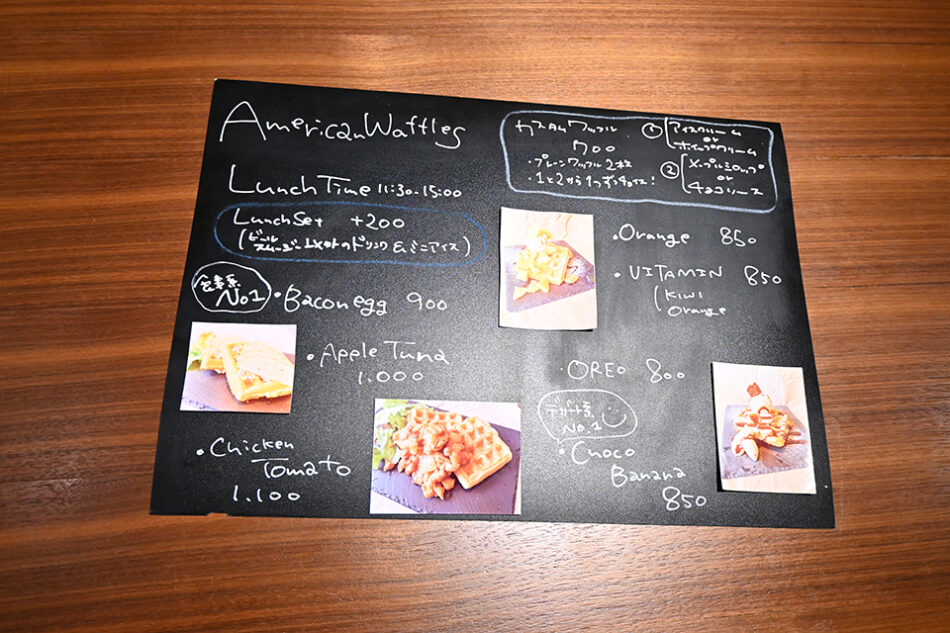 American Waffles
Lunch Time 11:30-15:00
Lunch Set +200
(ビール スムージー以外のドリンク & ミニアイス)
食事系
No1
・Bacon egg 900
・Apple Tuna
1.000
・Chicken
Tomato
1.100
カスタムワッフル
700
・プレーンワッフル2枚
・1と2から1つずつチョイス!
① アイスクリーム
or
ホイップクリーム
② メープルシロップ
or
チョコソース
・Orange 850
・VITAMIN 850
(KIWI
Orange
・OREO 800
デザート系
No.1
・Choco
Banana
850